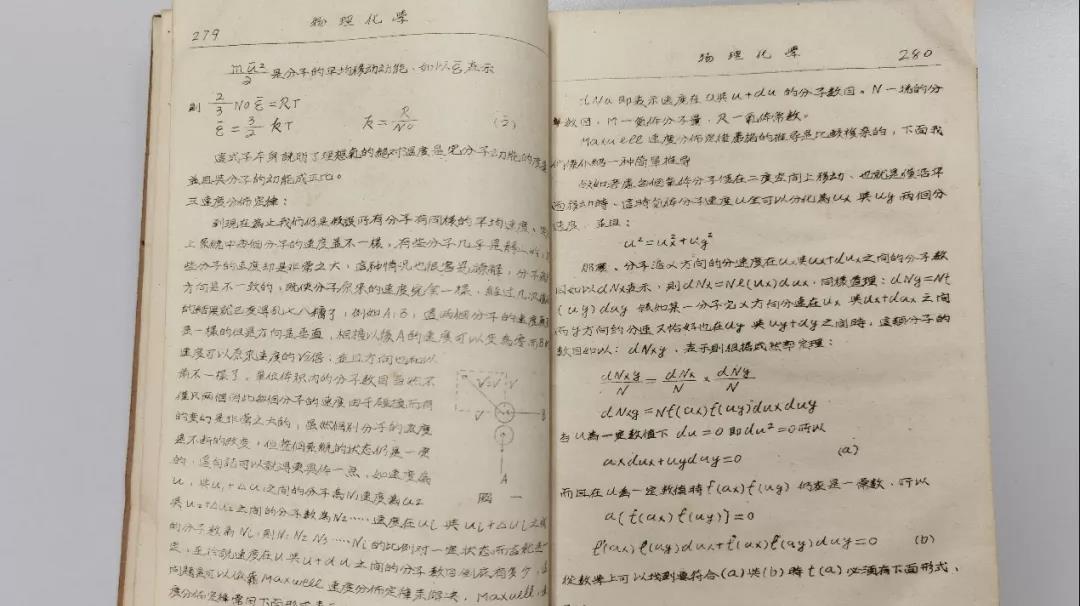 279
物理化学
mū²/2 是分子的平均移动动能、如以ε̄表示
则 2/3 N0 ε̄ = RT
ε̄ = 3/2 kT k = R/N0 (2)
這式子本身說明了理想氣的絕对温度是
並且共分子的动能成正比。
三速度分佈定律：
到現在為止我們仍是假設所有分子有同樣的平均速度、
上系統中各個分子的速度並不一樣，有些分子几乎是静止的
些分子的速度却是非常之大，這種情况也很容易
方向是不一致的，既使分子原来的速度完全一樣、經过几次
的結果就速度混乱七八糟了，例如A；B；這两個分子的速度
是一樣的但是方向是垂直，相撞以後A的速度可以变為零而B
速度可以原来速度的√2倍；並且方向也和以
前不一樣了。单位体积内的分子数目当然不
僅只两個因此每個分子的速度由于碰撞而
的变幻是非常之大的，虽然個别分子的速度
是不断的改变，但整個系統的状态仍是一定
的，這句話可以說得更具体一点，如速度為
u₁共u₁+Δu₁之间的分子為N₁速度為u₂
共u₂+Δu₂之间的分子数為N₂……速度在ui共ui+Δui之
的分子数為Ni，则N₁ N₂ N₃……Ni的比例对一定状态而言就是一
定，至於說速度在u共u+du之间的分子数目到底有多少，
问题是可以依靠Maxwell速度分佈定律来解决，Maxwell
度分佈定律
V V=V V
B
A
圖一
物理化学
280
dNu即表示速度在u共u+du的分子数目。N一塊的分
数目，M一氣体分子量，R一氣体常数。
Maxwell速度分佈定律嚴格的推导是比較複杂的，下面我
們僅介紹一种简单推导
假如考慮每個氣体分子僅在二度空间上移动、也就是僅沿平
面移动時、這時氣体分子速度u全可以分化為ux共uy两個分
速度，並且：
u²=ux²+uy²
那麼、分子沿x方向的分速度在ux共ux+dux之间的分子数
目如以dNx表示，则dNx=Nf(ux)dux，同樣道理：dNy=Nf
(uy)duy 假如某一分子它x方向分速在ux共ux+dux之间
而y方向的分速又恰好也在uy共uy+dy之间時，這類分子的
数目如以：dNxy、表示则根据或然率定理：
dNxy/N = dNx/N × dNy/N
dNxy=Nf(ux)f(uy)duxduy
当u為一定数值下 du=0即du²=0所以
uxdux+uyduy=0 (a)
而且在u為一定数值時f(ux)f(uy)仍表是一常数，所以
d[f(ux)f(uy)]=0
f'(ux)f(uy)dux+f(ux)f'(uy)duy=0 (b)
從数学上可以找到要符合(a)共(b)時f(u)必須有下面形式、